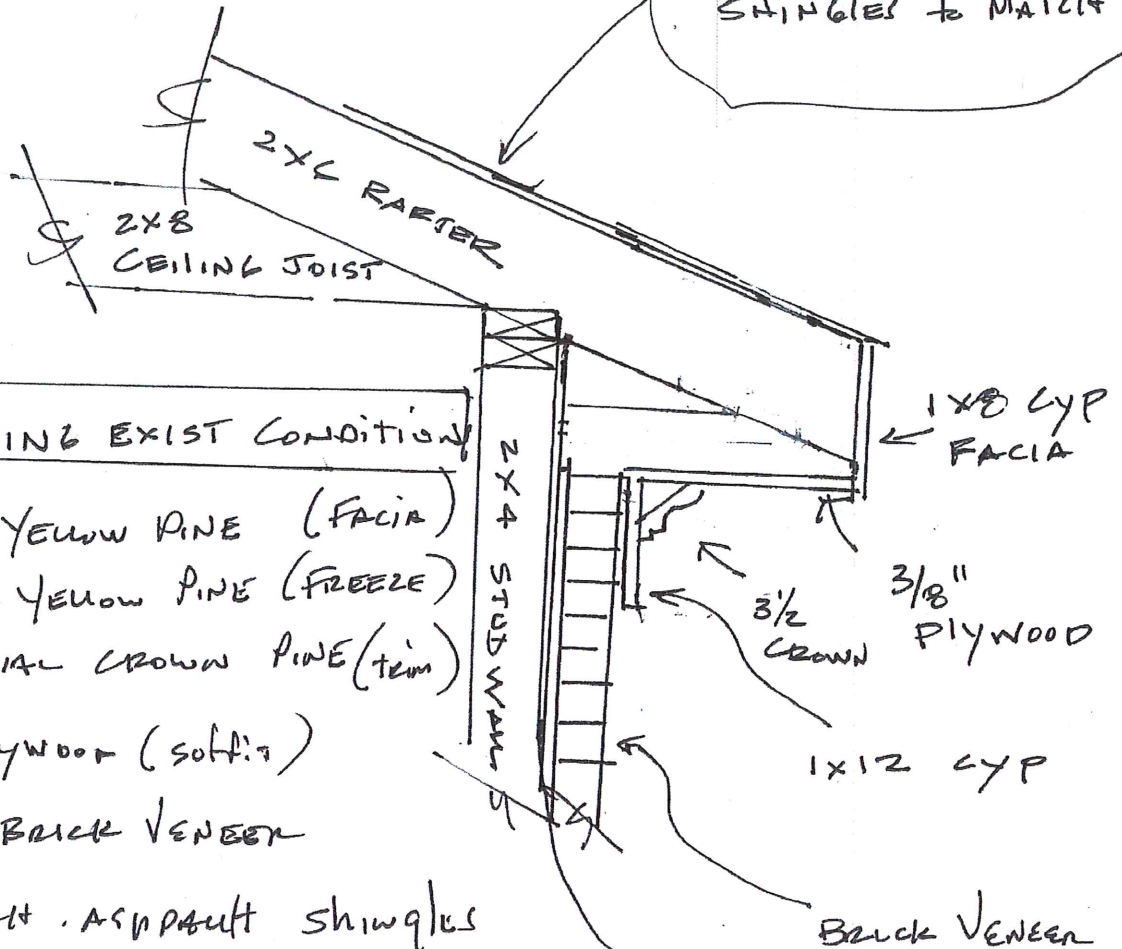 SHINGLES to MATCH
2X6 RAFTER
2X8
CEILING JOIST
ING EXIST CONDITION
1X8 CYP
FACIA
YELLOW PINE (FACIA)
YELLOW PINE (FREEZE)
IAL CROWN PINE (trim)
YWOOD (soffit)
BRICK VENEER
H. ASPPAULT Shingles
2X4 STUD WALL
3 1/2
CROWN
3/8"
PLYWOOD
1X12 CYP
BRICK VENEER